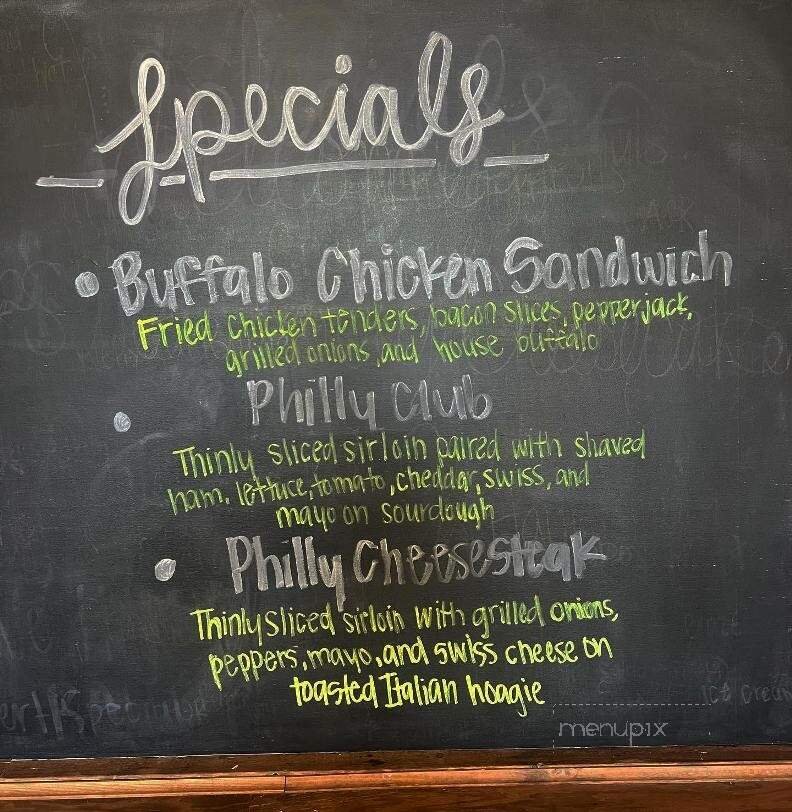 Specials
• Buffalo Chicken Sandwich
Fried Chicken tenders, bacon slices, pepperjack,
grilled onions, and house buffalo
• Philly Club
Thinly sliced sirloin paired with shaved
ham, lettuce, tomato, cheddar, swiss, and
mayo on sourdough
• Philly Cheesesteak
Thinly sliced sirloin with grilled onions,
peppers, mayo, and swiss cheese on
toasted Italian hoagie
menupix